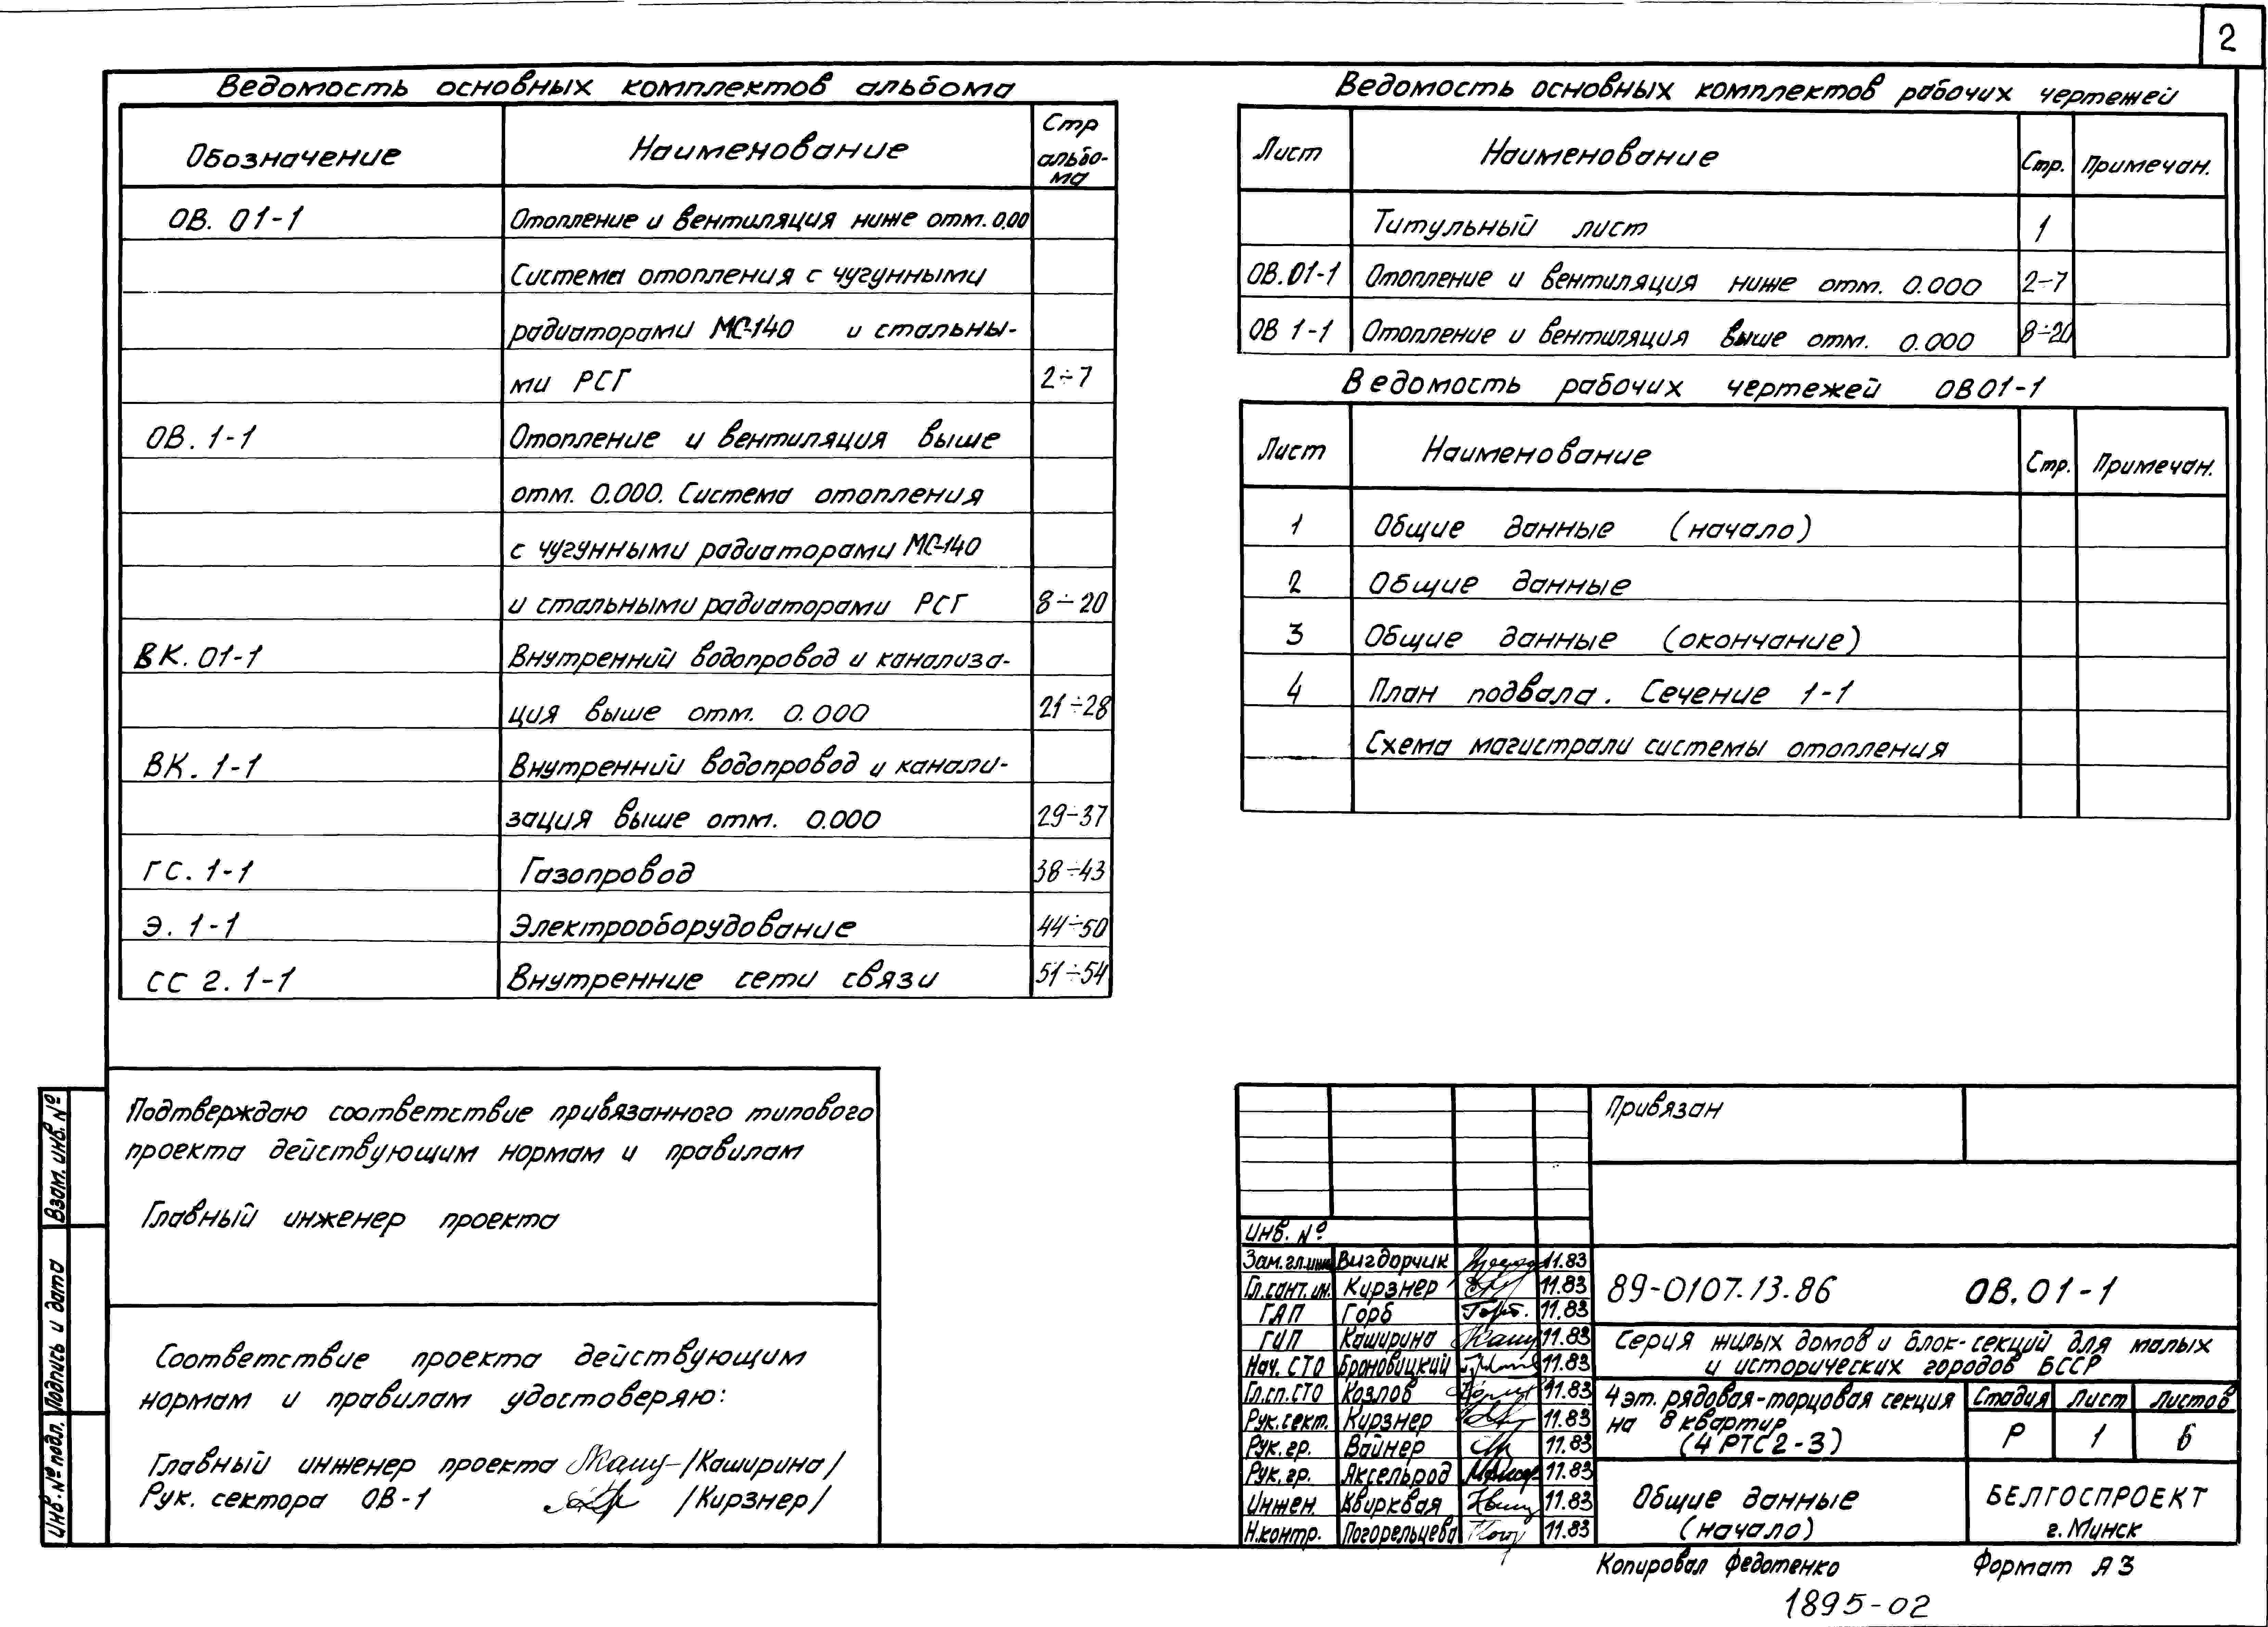 2
Ведомость основных комплектов альбома
Обозначение Наименование Стр альбо-ма
ОВ. 01-1 Отопление и вентиляция ниже отм. 0.00
Система отопления с чугунными
радиаторами МС-140 и стальны-
ми РСГ 2÷7
ОВ. 1-1 Отопление и вентиляция выше
отм. 0.000. Система отопления
с чугунными радиаторами МС-140
и стальными радиаторами РСГ 8÷20
ВК. 01-1 Внутренний водопровод и канализа-
ция выше отм. 0.000 21÷28
ВК. 1-1 Внутренний водопровод и канали-
зация выше отм. 0.000 29÷37
ГС. 1-1 Газопровод 38÷43
Э. 1-1 Электрооборудование 44÷50
СС 2. 1-1 Внутренние сети связи 51÷54
Ведомость основных комплектов рабочих чертежей
Лист Наименование Стр. Примечан.
Титульный лист 1
ОВ.01-1 Отопление и вентиляция ниже отм. 0.000 2÷7
ОВ 1-1 Отопление и вентиляция выше отм. 0.000 8÷20
Ведомость рабочих чертежей ОВ01-1
Лист Наименование Стр. Примечан.
1 Общие данные (начало)
2 Общие данные
3 Общие данные (окончание)
4 План подвала. Сечение 1-1
Схема магистрали системы отопления
Подтверждаю соответствие привязанного типового
проекта действующим нормам и правилам
Главный инженер проекта
Соответствие проекта действующим
нормам и правилам удостоверяю:
Главный инженер проекта /Каширина/
Рук. сектора ОВ-1 /Кирзнер/
Взам. инв. №
Подпись и дата
Инв. № подл.
Привязан
Инв. №
Зам.гл.инж Вигдорчик 11.83
Гл.сант.ин. Кирзнер 11.83
ГАП Горб 11.83
ГИП Каширина 11.83
Нач. СТО Броновицкий 11.83
Гл.сп.СТО Козлов 11.83
Рук.сект. Кирзнер 11.83
Рук.гр. Вайнер 11.83
Рук.гр. Аксельрод 11.83
Инжен. Квирквая 11.83
Н.контр. Погорельцева 11.83
89-0107.13.86 ОВ.01-1
Серия жилых домов и блок-секций для малых
и исторических городов БССР
4 эт. рядовая-торцовая секция
на 8 квартир
(4 РТС 2-3)
Стадия Лист Листов
Р 1 6
Общие данные
(начало)
БЕЛГОСПРОЕКТ
г. Минск
Копировал Федотенко Формат А3
1895-02